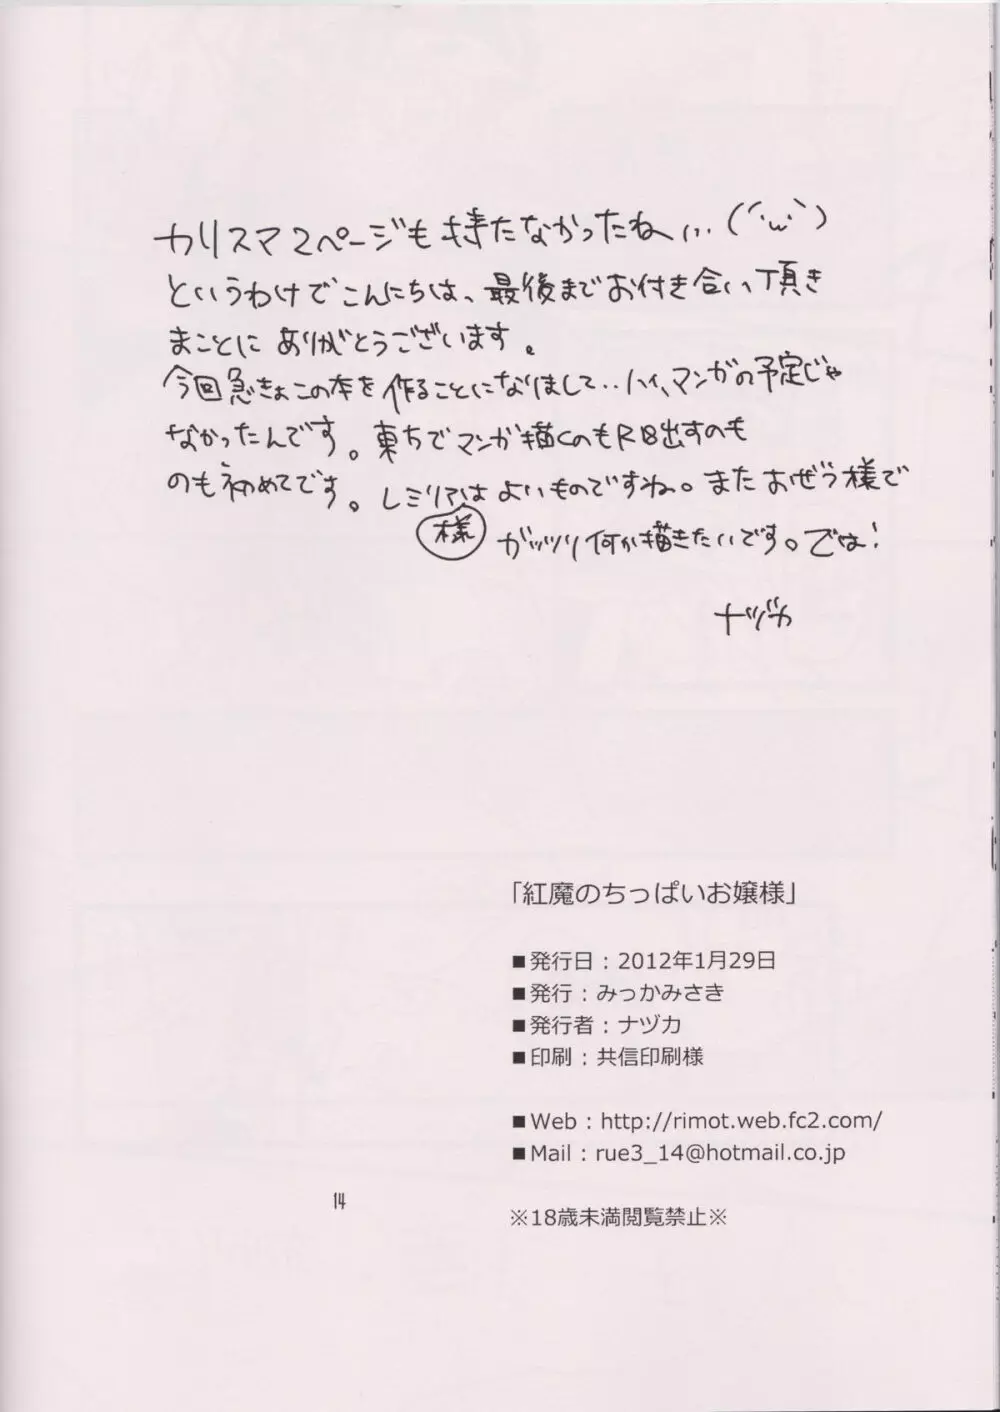 カリスマ2ページも持たなかったね... (´･ω･`)
というわけでこんにちは、最後までお付き合い頂き
まことにありがとうございます。
今回急きょこの本を作ることになりまして‥ハイ、マンガの予定じゃ
なかったんです。東方でマンガ描くのもR18出すのも
のも初めてです。レミリアはよいものですね。またおぜう様で
様
ガッツリ何か描きたいです。では!
ナヅカ
「紅魔のちっぱいお嬢様」
■発行日：2012年1月29日
■発行：みっかみさき
■発行者：ナヅカ
■印刷：共信印刷様
■Web：http://rimot.web.fc2.com/
■Mail：rue3_14@hotmail.co.jp
14
※18歳未満閲覧禁止※